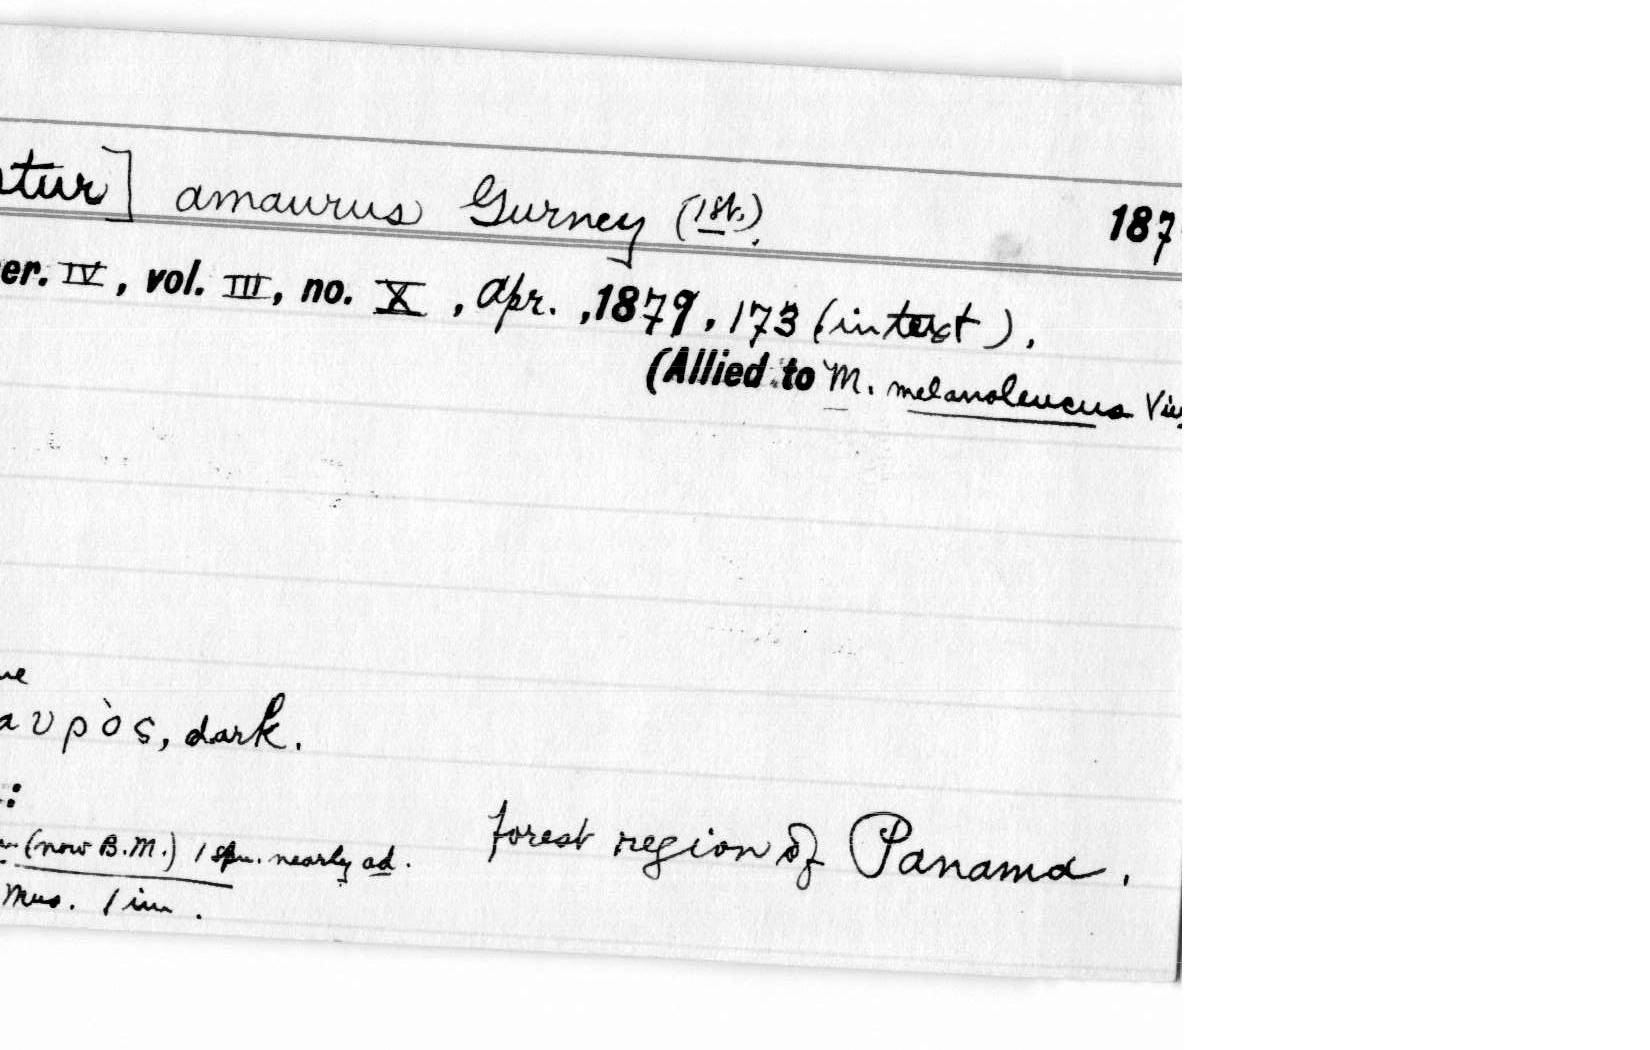 tur] amaurus Gurney (1st.). 187
er. IV, vol. III, no. X, Apr., 1879, 173 (in text).
(Allied to M. melanoleucus Vie
ue
αυρὸς, dark.
:
(now B.M.) 1 spn. nearly ad. forest region of Panama.
Mus. 1 im.